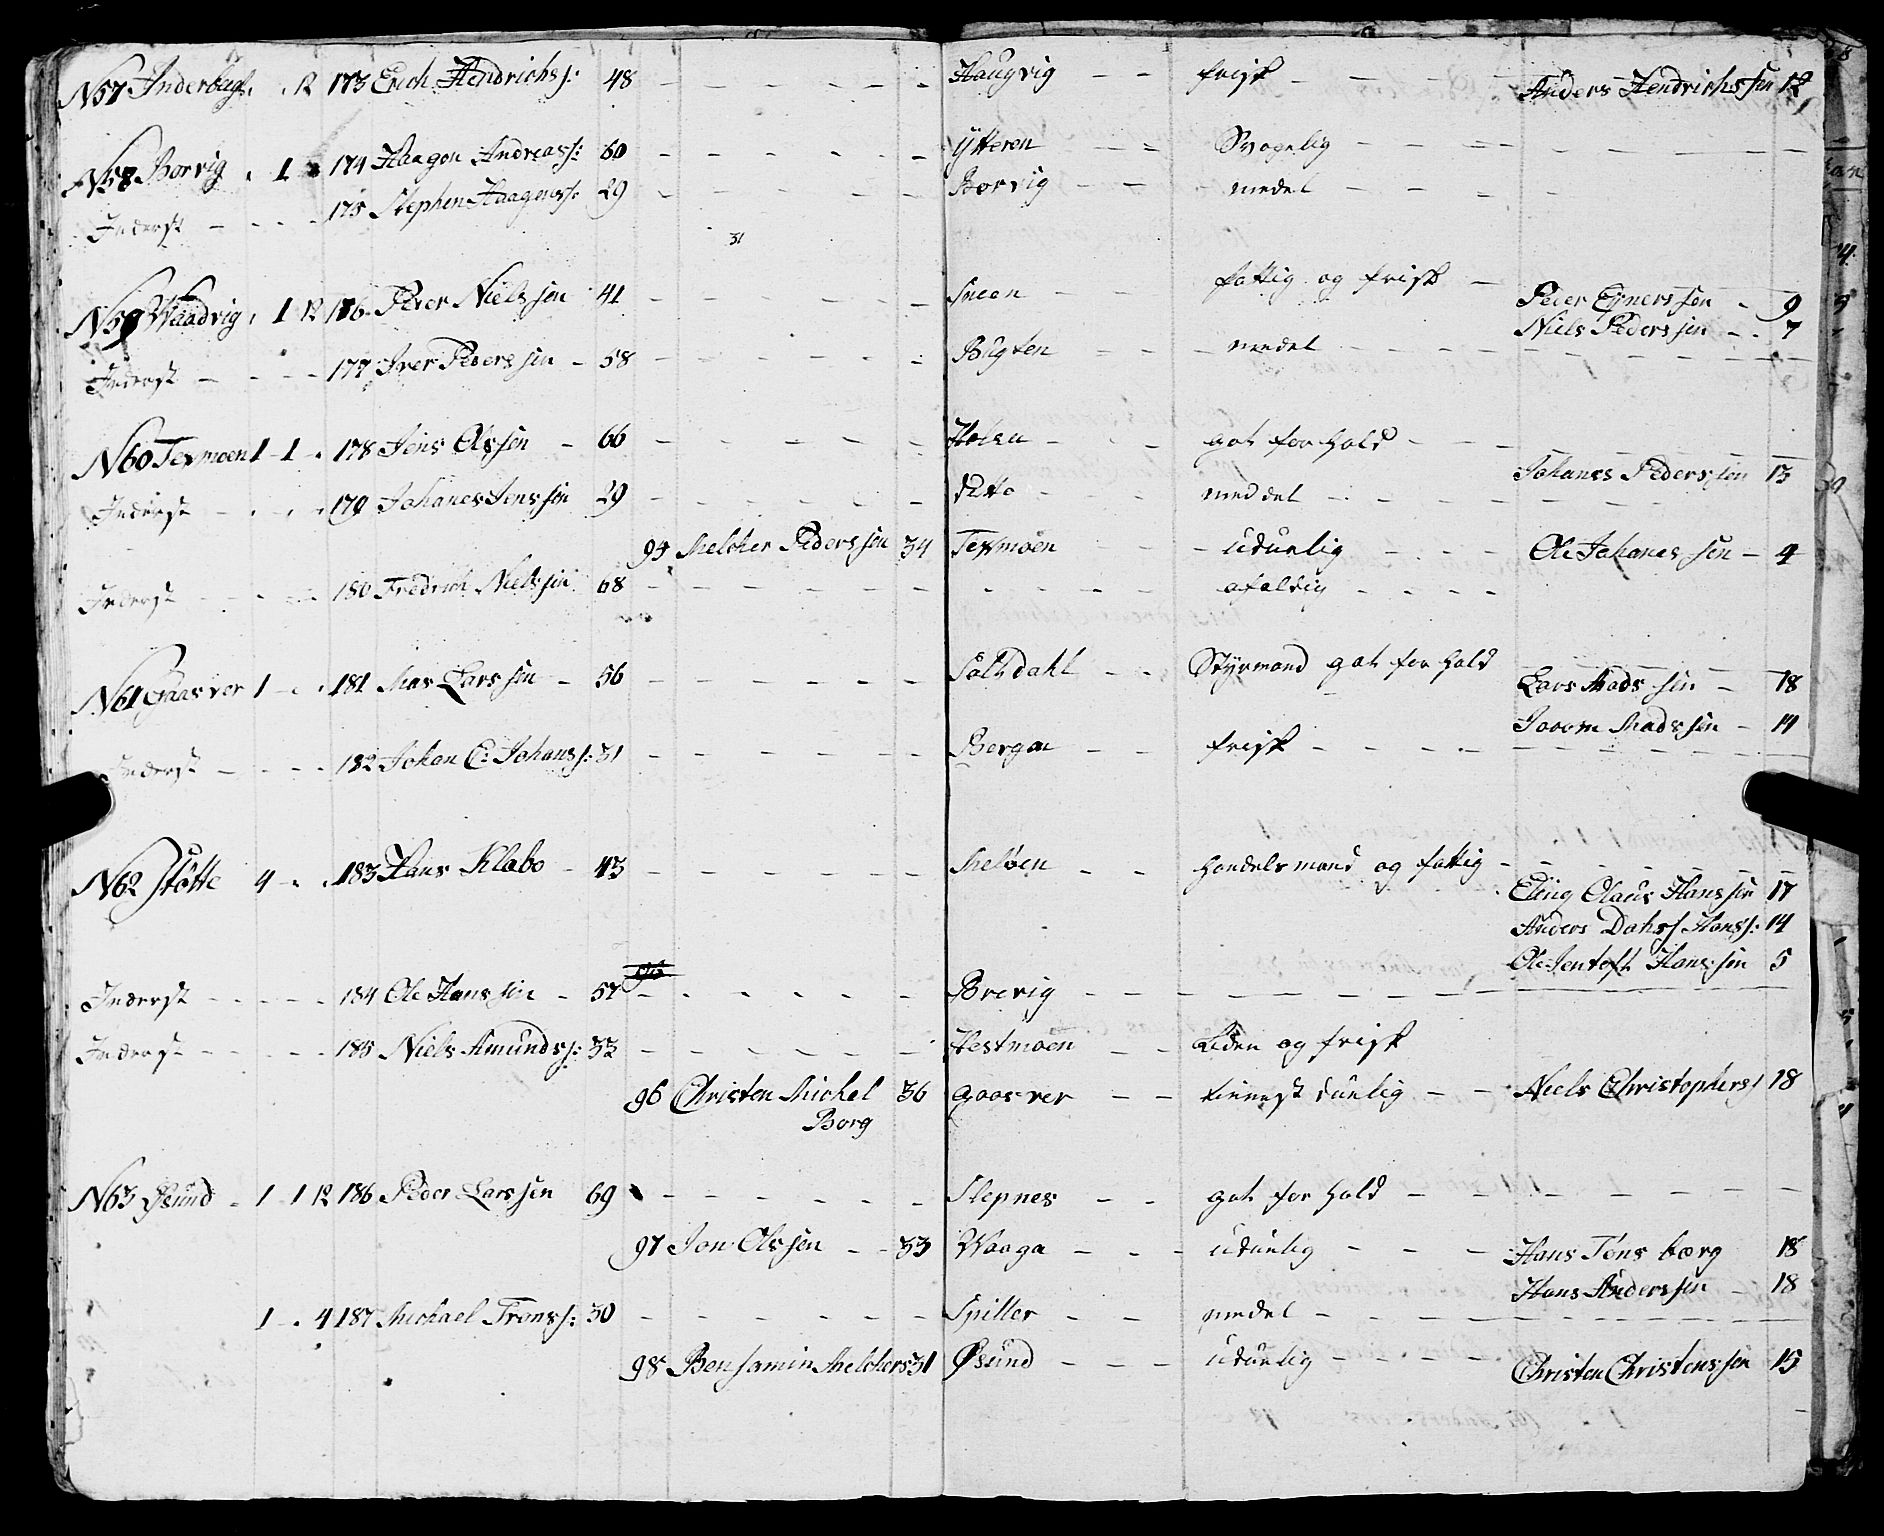 N57 Inderbug . . 12 173 Erich Hendrichs: 48 Haugvig frisk Anders Hendrichssen 12
N58 Borvig . 1 174 Haagen Andreass: 60 Ytteren Svagelig
Inderst 175 Stephen Haagenss: 29 Borvig medel
31
N59 Waadvig . 1 12 176 Peder Nielssen 41 Sneen fattig og frisk Peder Ejnerssen 9
Niels Pederssen 7
Inderst 177 Iver Pederssen 58 Bugten medel
N60 Texmoen 1 1 . 178 Jens Olssen 66 got forhold
Inderst 179 Johanes Jenssen 29 ditto meddel Johanes Pederssen 13
95 Melcher Pederssen 34 Texmoen uduelig Ole Johanessen 4
Inderst 180 Fredrich Nielssen 68 afældig
N61 Gaasvær 1 . 181 Mas Larssen 56 Saltdahl Styrmand got forhold Lars Madssen 18
Joorm Madssen 14
Inderst 182 Johan C: Johanss: 31 Bergen frisk
N62 Støtte 4 . 183 Hans Klæbo 43 Meløen Handelsmand og fattig
Elling Olaus Hanssen 17
Anders Dahss Hanss: 14
Ole Jentoft Hanssen 5
96
Inderst 184 Ole Hanssen 57 Brevig
Inderst 185 Niels Amundss: 32 Hestmoen Liden og frisk
96 Christen Michel 36 Gaasvær tienest duelig Niels Christophers 18
Borg
N63 Øsund 1 1 12 186 Peder Larssen 69 Slepnes got forhold
97 Jon Olssen 33 Waaga uduelig Hans Tønsbærg 18
Hans Anderssen 18
1 . 4 187 Michael Transs: 30 Spilder medel
98 Bensamin Melchers 31 Øsund uduelig Christen Christenssen 15